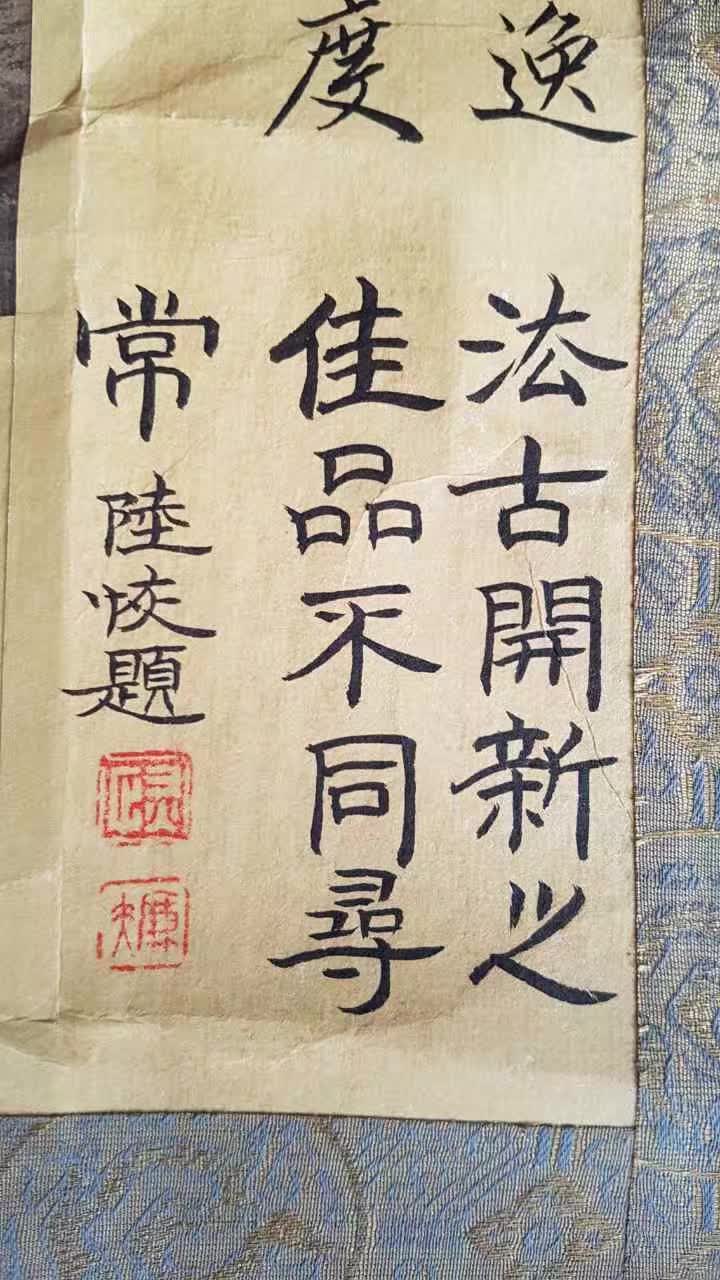 逸
法古開新之
度
佳品不同尋
常
陸恢題
廉夫